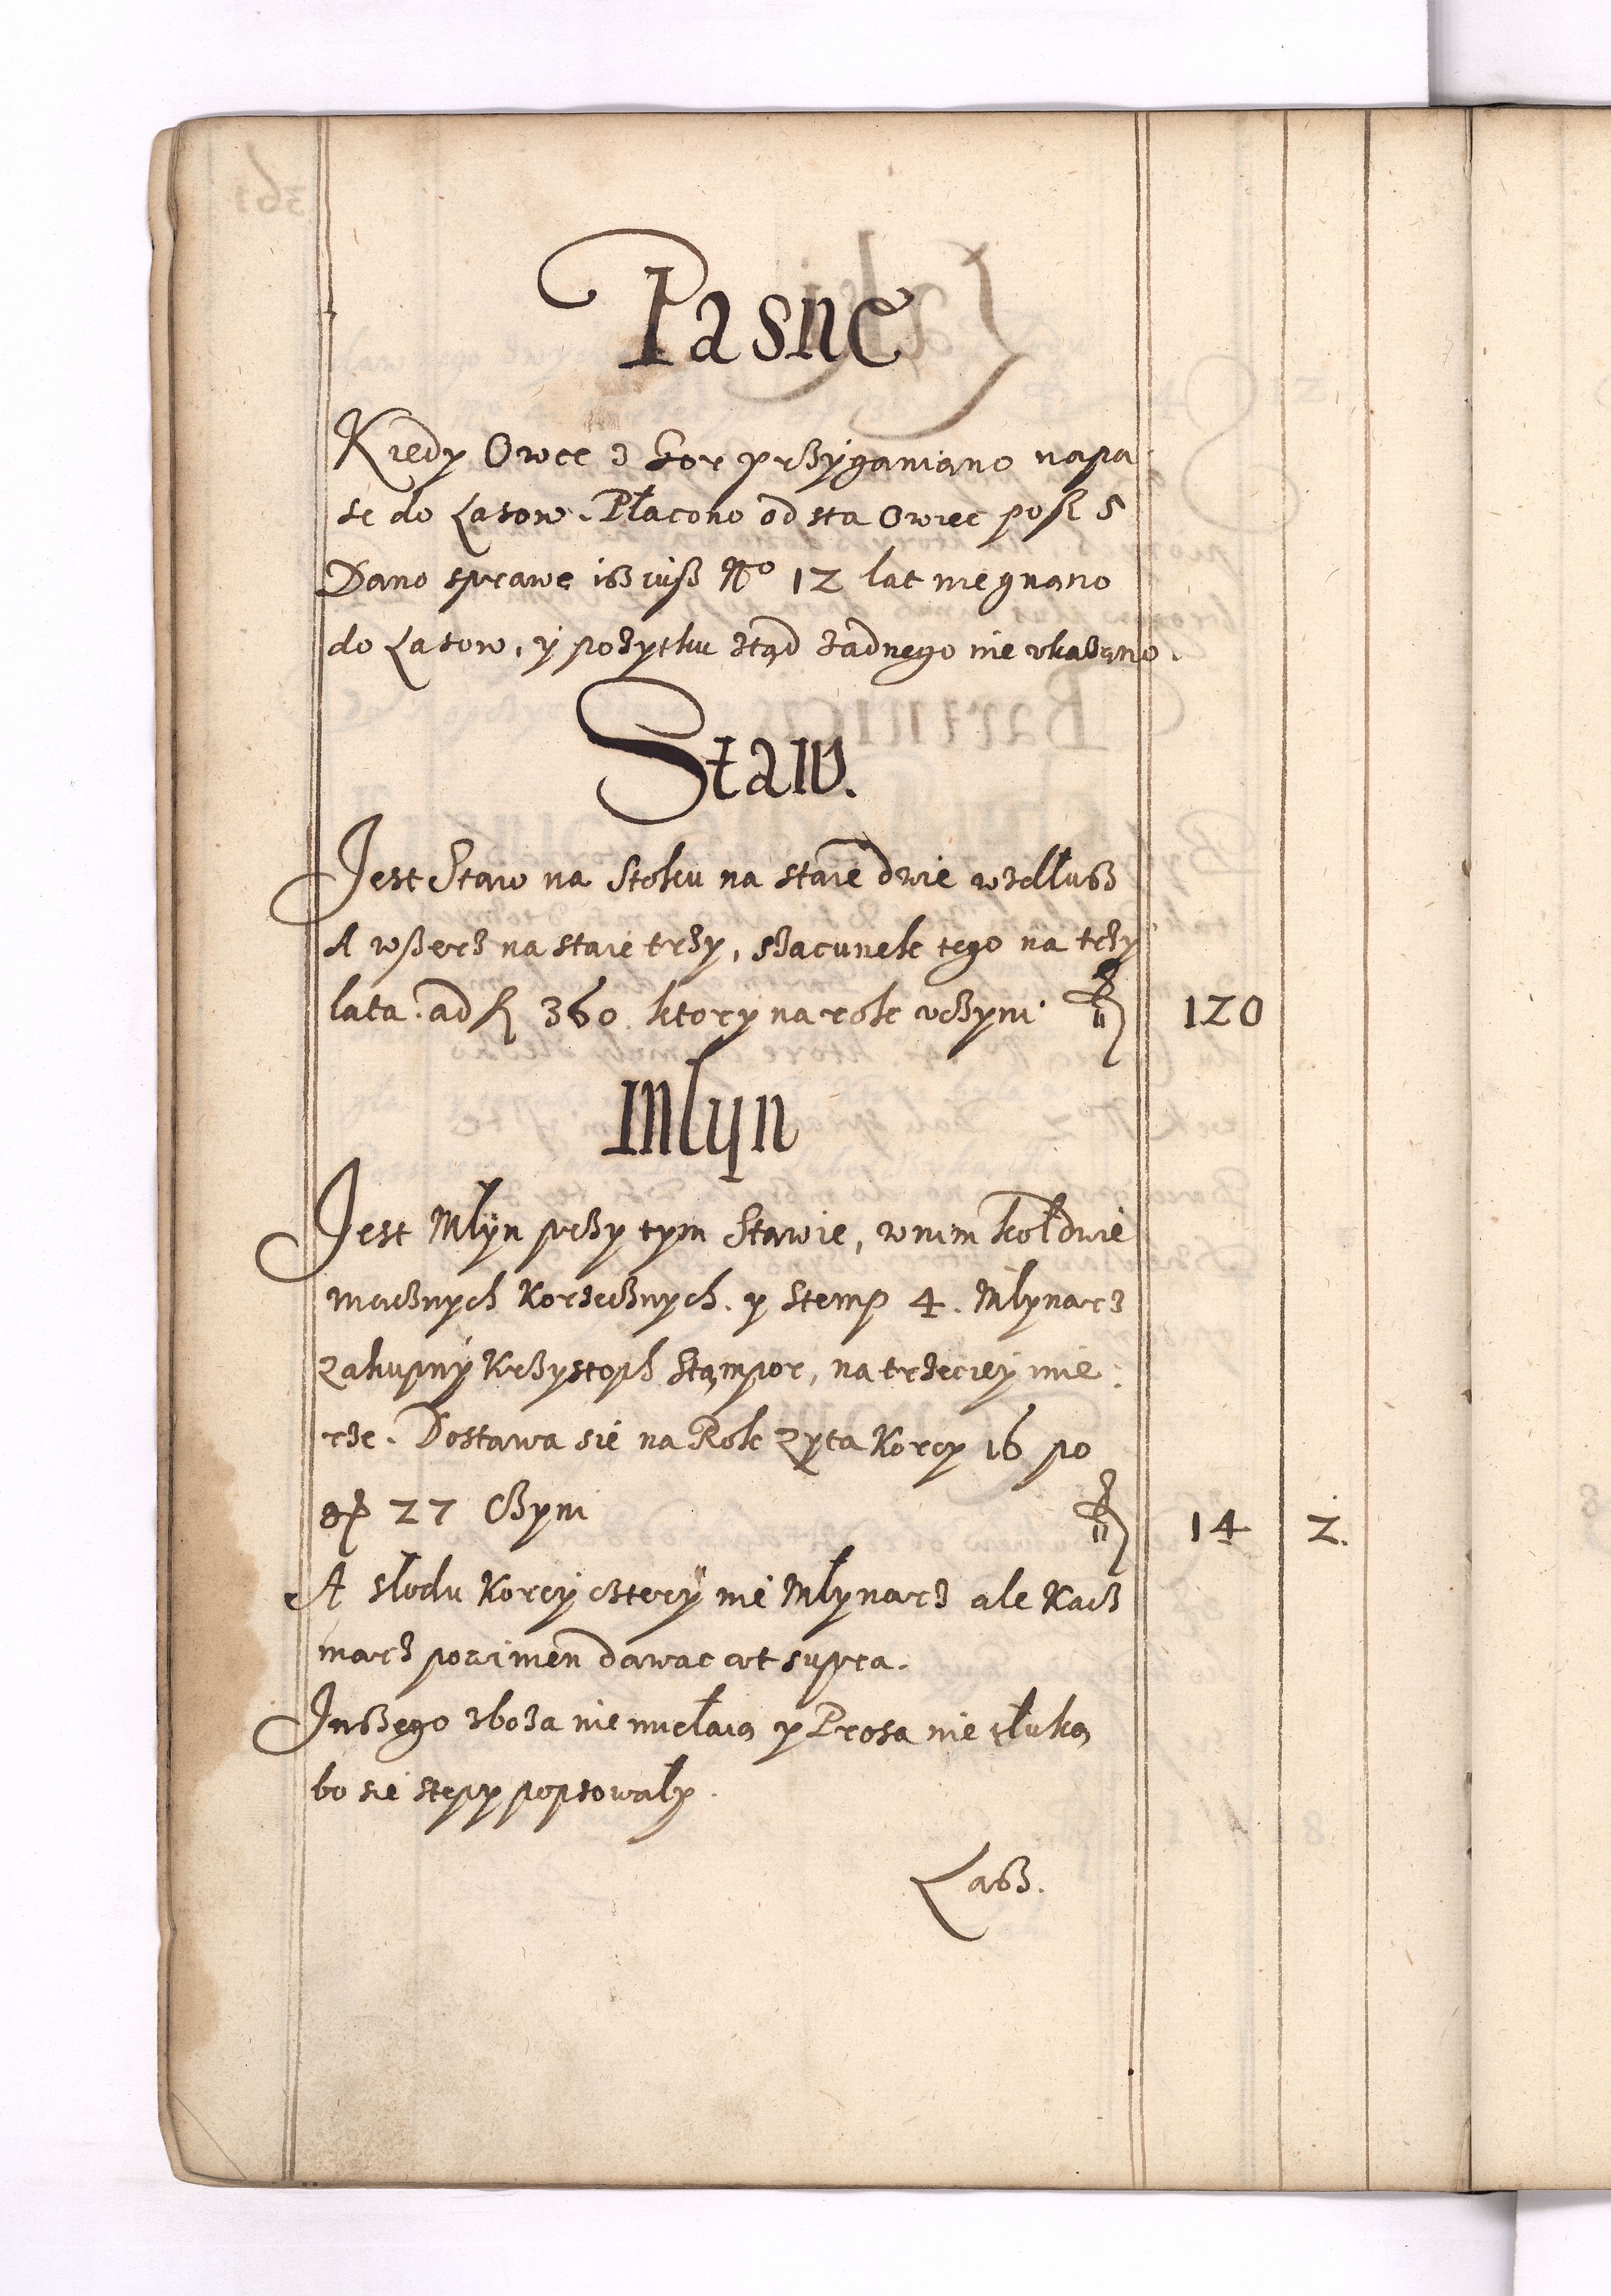 Pasne
Kiedy Owce z Gor przyganiano napa
se do Lasow. Płacono od sta Owiec po fl 5
Dano sprawe isz iusz No 12 lat niegnano
do Lasow, y pozytku ztąd zadnego nie vkazano.
Staw.
Jest Staw na Stoku na staie dwie wzdłusz
A wszerz na staie trzy, szacunek tego na trzy
lata. ad fl 360. ktory na rok vczyni fl 120
Mlyn
Jest Mlÿn przy tym Stawie, w nim koł dwie
mącznych Korzecznych. y Stemp 4. Mlynarz
zakupny Krzystoph Stąmpor, na trzeciey mie:
rze. Dostawa sie na Rok zyta Korcy 16 po
gr 27 Czyni fl 14 2.
A słodu Korcy cztery nie Mlynarz ale Kacz
marz powinien dawac ut supra.
Jnszego zboza nie mełaią y Prosa nie tłuką
bo sie stępy popsowały.
Lasz.